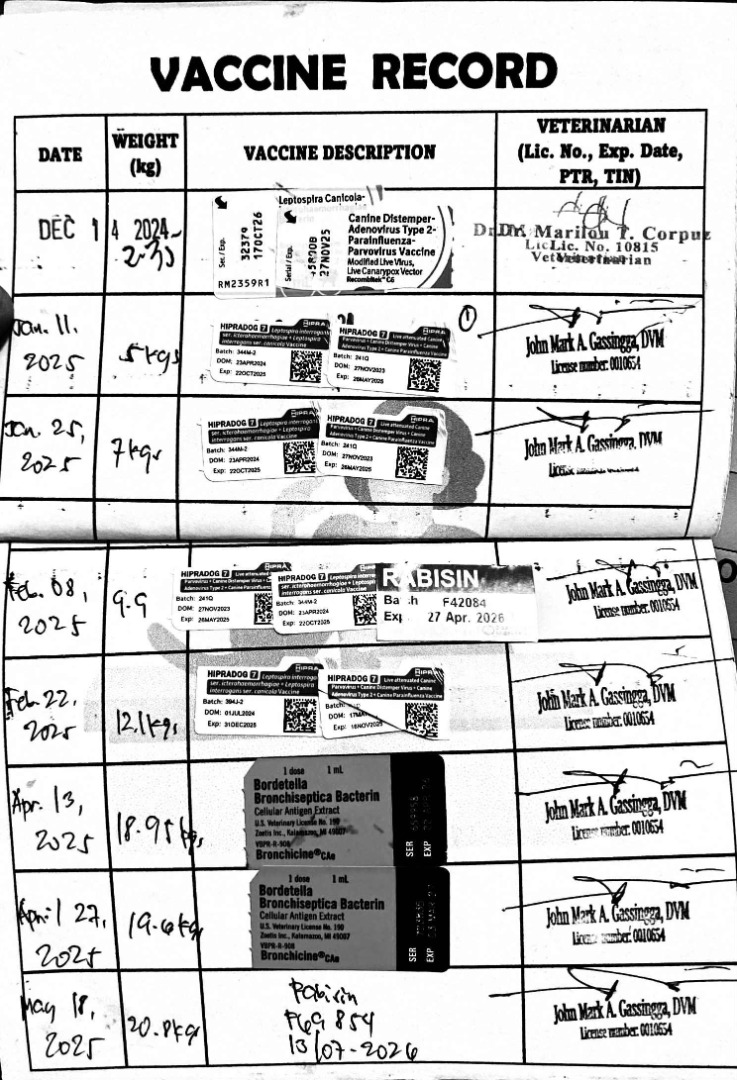 VACCINE RECORD
DATE
WEIGHT
(kg)
VACCINE DESCRIPTION
VETERINARIAN
(Lic. No., Exp. Date,
PTR, TIN)
DEC 1 4 2024
2.35
Ser./Exp.
32379
17OCT26
RM2359R1
Leptospira Canicola-
Serial / Exp.
27NOV25
Canine Distemper-
Adenovirus Type 2-
Parainfluenza-
Parvovirus Vaccine
Modified Live Virus,
Live Canarypox Vector
Recombitek® C6
Dr. Marilou T. Corpuz
Lic. No. 10815
Veterinarian
Jan. 11,
2025
5 kgs
HIPRADOG 7 Leptospira interrogans
ser. icterohaemorrhagiae + Leptospira
interrogans ser. canicola Vaccine
Batch: 344M-2
DOM: 23APR2024
Exp: 22OCT2025
HIPRA
HIPRADOG 7 Live attenuated Canine
Parvovirus + Canine Distemper Virus + Canine
Adenovirus Type 2 + Canine Parainfluenza Vaccine
Batch: 241Q
DOM: 27NOV2023
Exp: 26MAY2025
1
John Mark A. Gassingga, DVM
License number: 0010654
Jan. 25,
2025
7 kgs
HIPRA
HIPRADOG 7 Leptospira interrogans
ser. icterohaemorrhagiae + Leptospira
interrogans ser. canicola Vaccine
Batch: 344M-2
DOM: 23APR2024
Exp: 22OCT2025
HIPRA
HIPRADOG 7 Live attenuated Canine
Parvovirus + Canine Distemper Virus + Canine
Adenovirus Type 2 + Canine Parainfluenza Vaccine
Batch: 241Q
DOM: 27NOV2023
Exp: 26MAY2025
John Mark A. Gassingga, DVM
License
Feb. 08,
2025
9.9
HIPRADOG 7 Live attenuated
Parvovirus + Canine Distemper Virus + Ca
Adenovirus Type 2 + Canine Parainfluenza
Batch: 241Q
DOM: 27NOV2023
Exp: 26MAY2025
HIPRADOG 7 Leptospira interro
ser. icterohaemorrhagiae + Leptosp
interrogans ser. canicola Vaccine
Batch: 344M-2
DOM: 23APR2024
Exp: 22OCT2025
RABISIN
Batch F42084
Exp 27 Apr. 2026
John Mark A. Gassingga, DVM
License number: 0010654
Feb. 22,
2025
12.1 kgs
HIPRADOG 7 Leptospira interrogo
ser. icterohaemorrhagiae + Leptospira
interrogans ser. canicola Vaccine
Batch: 394J-2
DOM: 01JUL2024
Exp: 31DEC2025
HIPRA
HIPRADOG 7 Live attenuated Canine
Parvovirus + Canine Distemper Virus + Canine
Adenovirus Type 2 + Canine Parainfluenza Vaccine
Batch:
DOM: 17MA
Exp: 16NOV2025
John Mark A. Gassingga, DVM
License number: 0010654
Apr. 13,
2025
18.95 kgs
1 dose 1 mL
Bordetella
Bronchiseptica Bacterin
Cellular Antigen Extract
U.S. Veterinary License No. 190
Zoetis Inc., Kalamazoo, MI 49007
VBPR-R-908
Bronchicine®CAe
SER
EXP
John Mark A. Gassingga, DVM
License number: 0010654
April 27,
2025
19.6 kgs
1 dose 1 mL
Bordetella
Bronchiseptica Bacterin
Cellular Antigen Extract
U.S. Veterinary License No. 190
Zoetis Inc., Kalamazoo, MI 49007
VBPR-R-908
Bronchicine®CAe
SER
EXP
John Mark A. Gassingga, DVM
License number: 0010654
May 18,
2025
20.8 kgs
Rabisin
F69854
13/07-2026
John Mark A. Gassingga, DVM
License number: 0010654